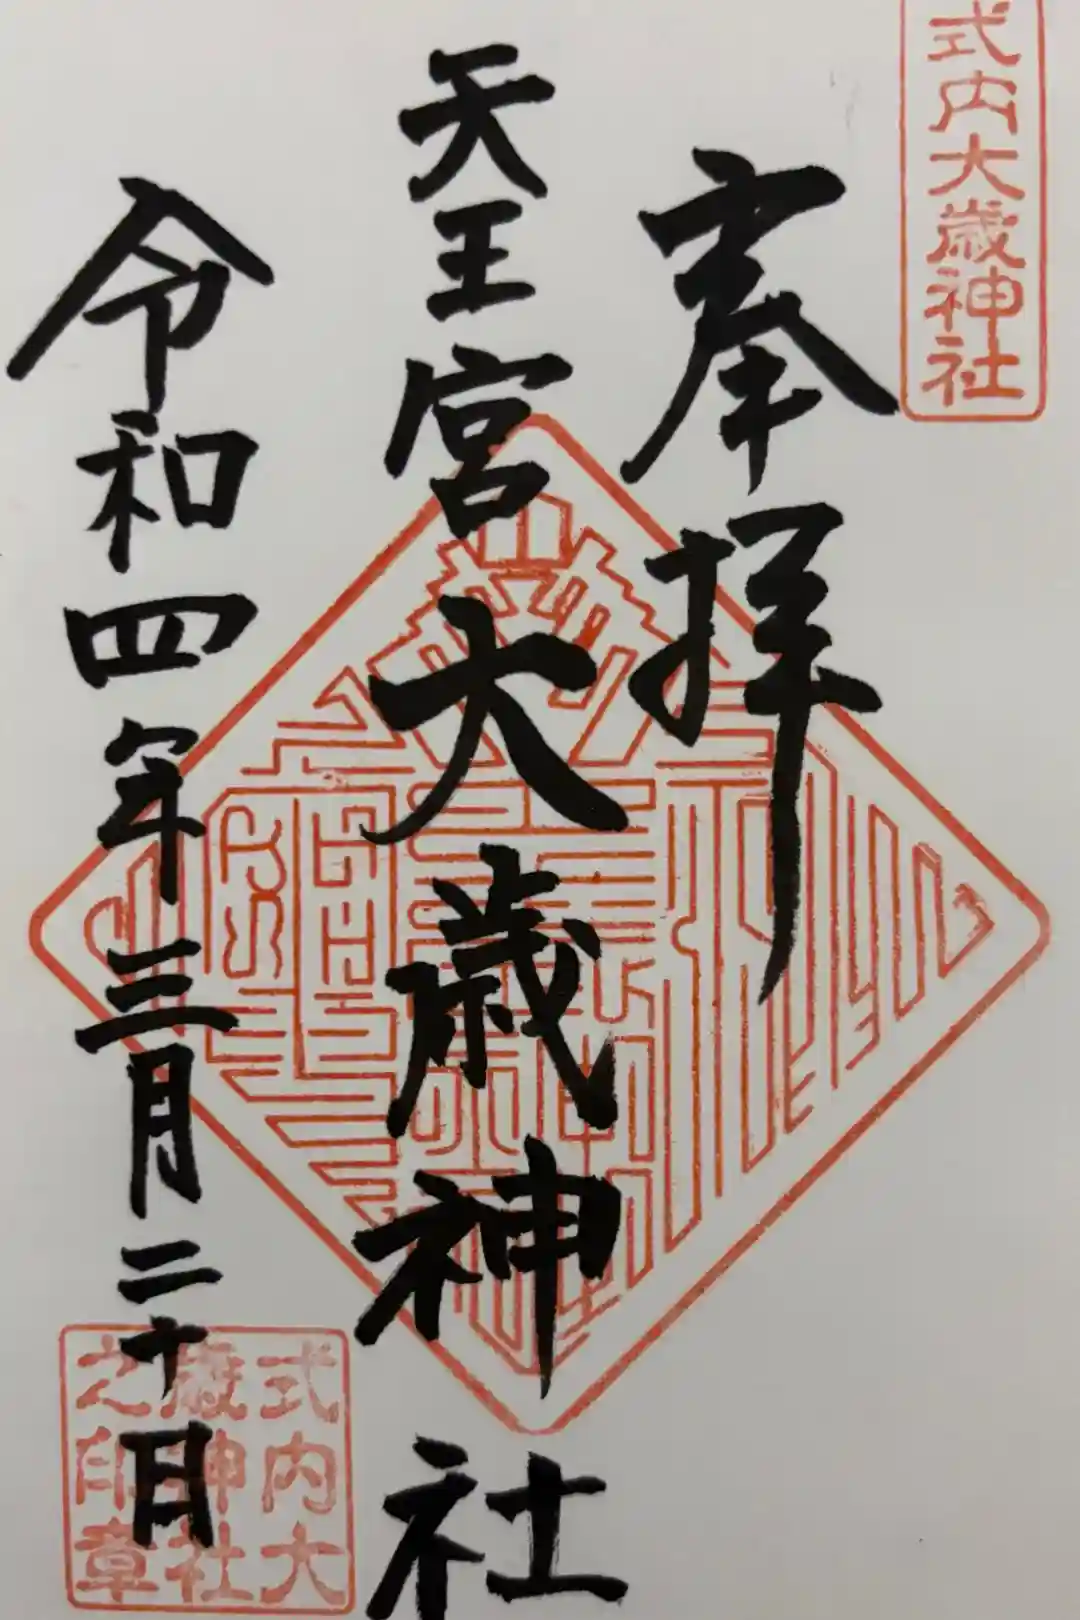 式内大歳神社
奉拝
天王宮大歳神社
令和四年三月二十日
式内大
歳神社
之印章